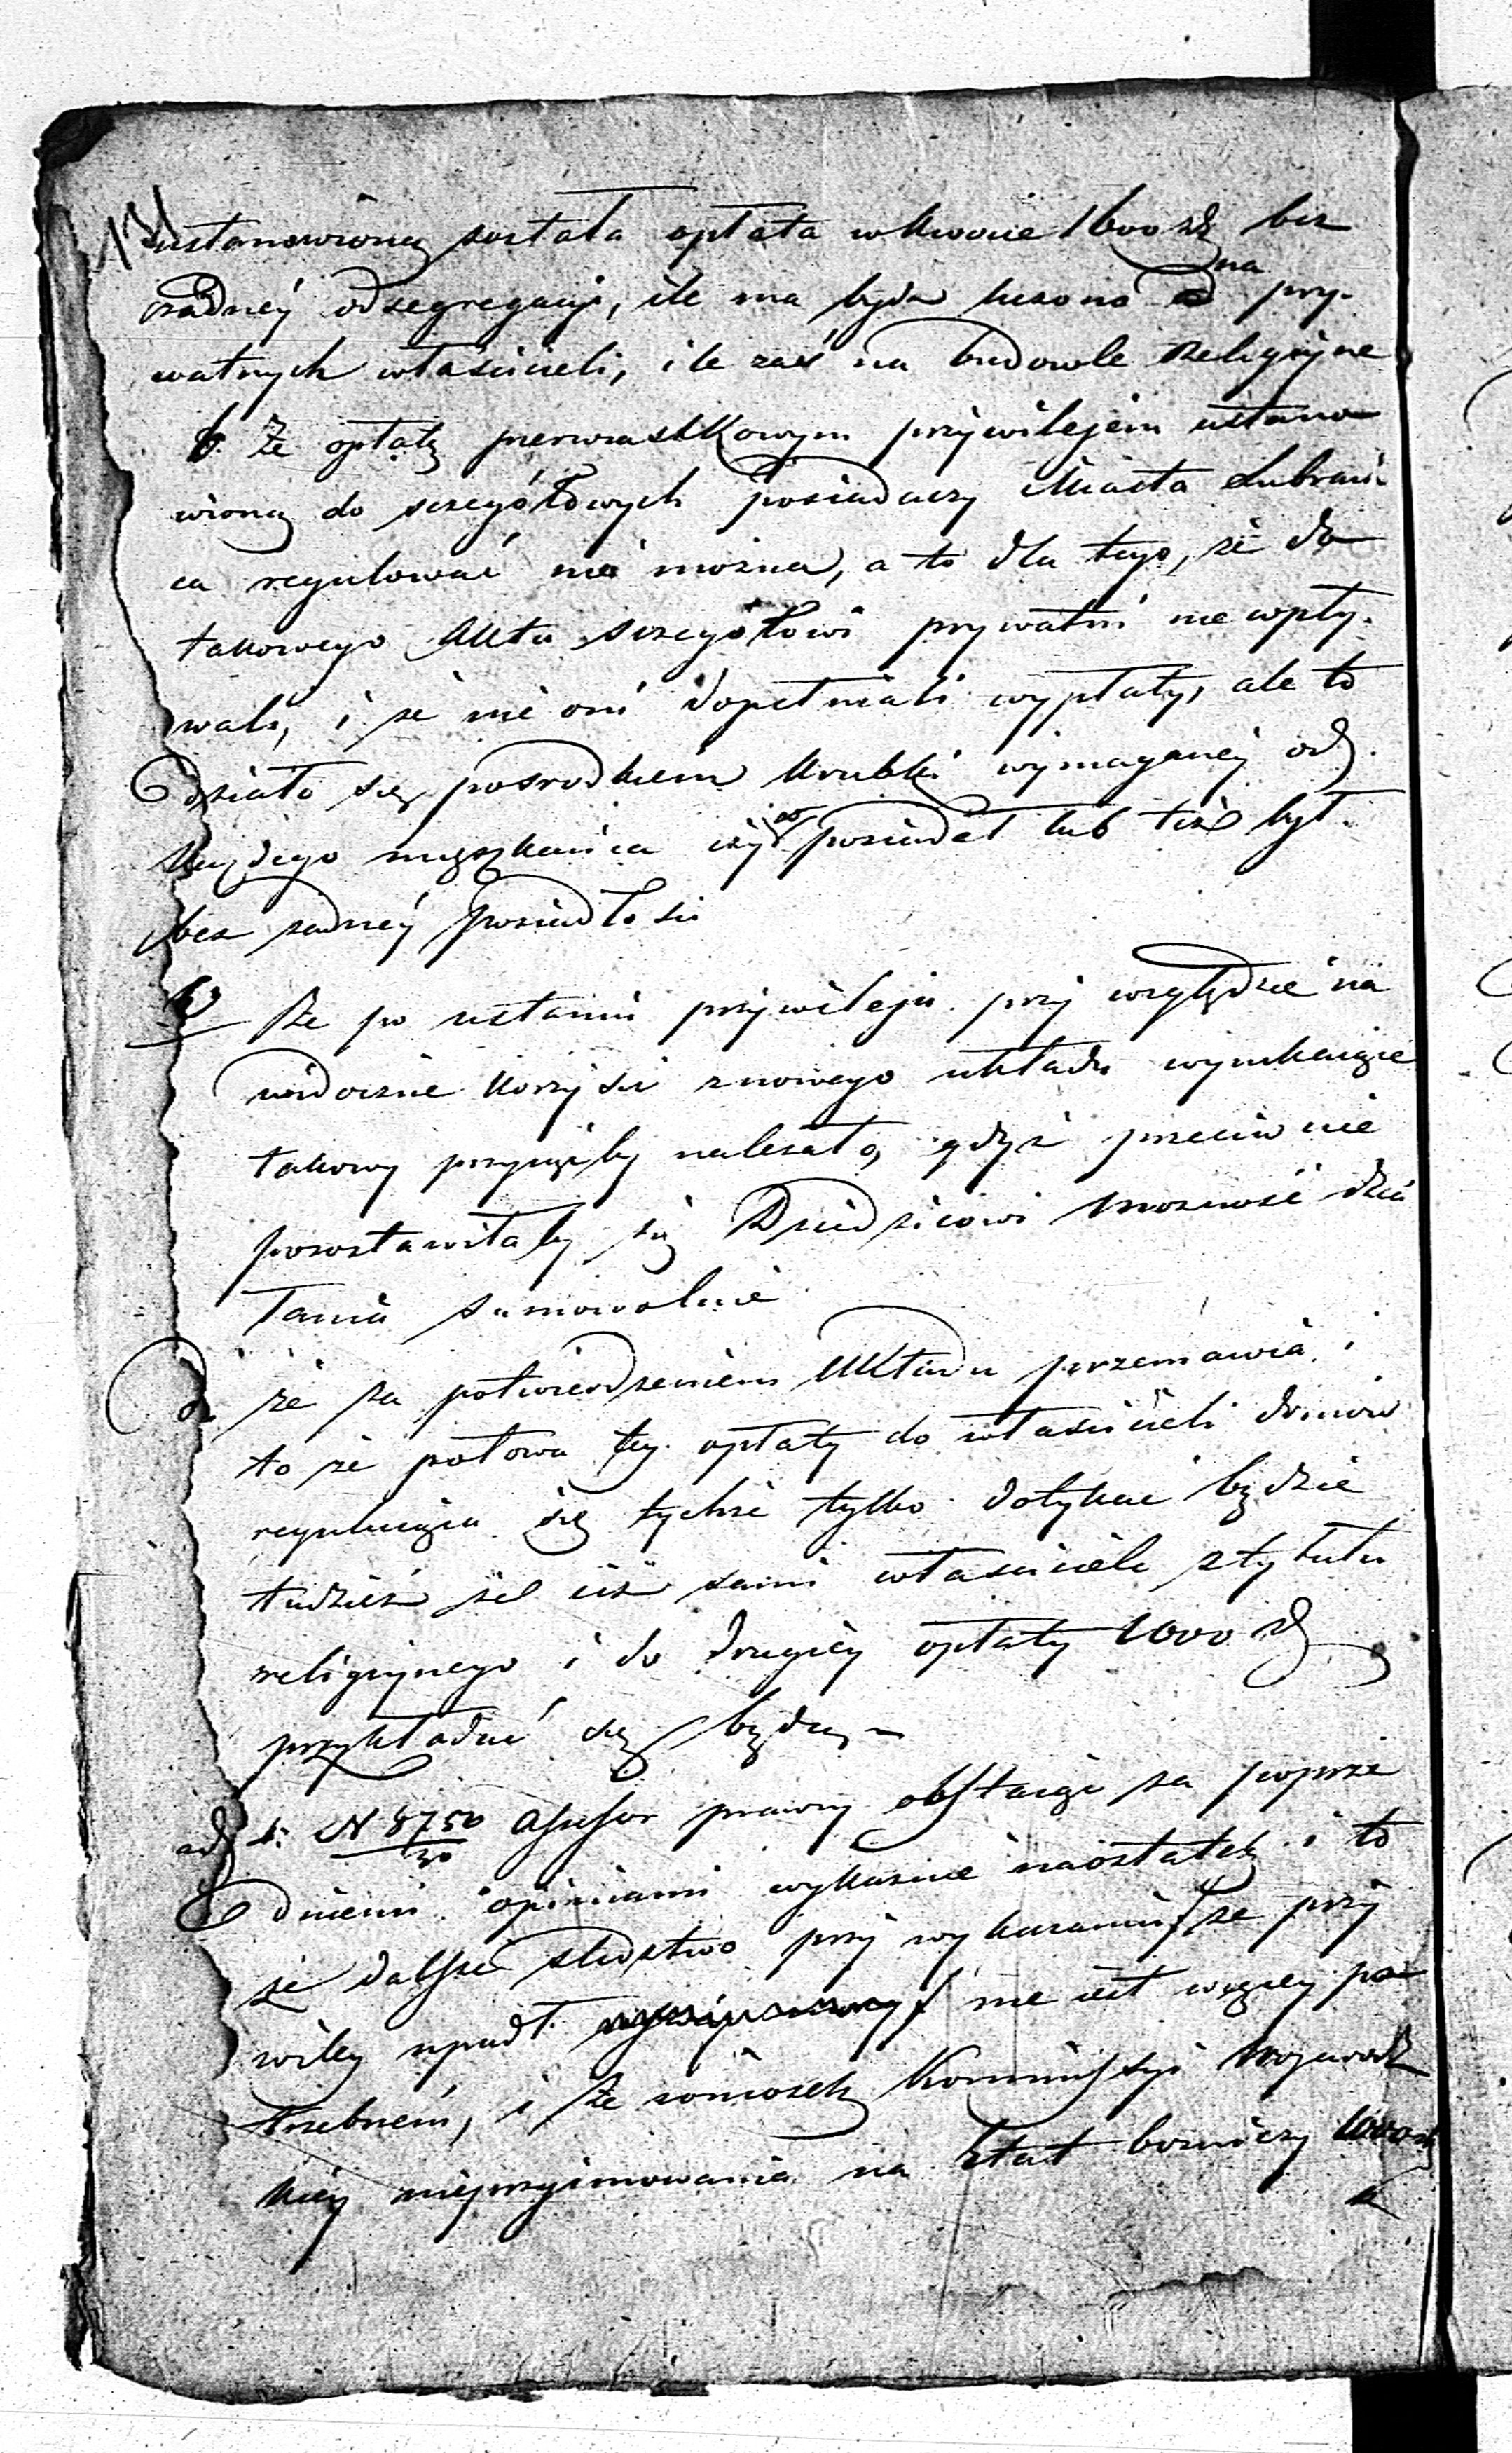 131
ustanowioną została opłata w kwocie 1600 zł bez
żadnéy odsegregacyi, ile ma bydź liczono na pry-
watnych właścicieli, ile zaś na budowle Religijne
b. Że opłatę pierwiastkowym przywilejem ustano
wioną do szczegółowych posiadaczy Miasta Lubrań-
ca regulować nie można, a to dla tego, że do
takowego Aktu szczegółowi prywatni nie wpły-
wali, i że nie oni dopełniali wypłaty, ale to
działo się pośrodkiem skrubki wymaganéj od
każdego mieszkańca czy co posiadał lub też był
bez żadnéy posiadłości
c Że po ustaniu przywileju przy względzie na
widoczne korzyści z nowego układu wynikaiące
takowy przyiąćby należało, gdyż przeciwnie
pozostawiłaby się Dziedzicowi możność dzia
łania samowolnie
d. że za potwierdzeniem Układu przemawia i
to że połowa téy opłaty do właścicieli domów
reguluiąca się tychże tylko dotykać będzie
tudzież że ciż sami właściciele z tytułu
religijnego i do drugiéy opłaty 1000 zł
przykładać się będą
ad 4: N 8750/30 Assessor prawny obstaiąc za poprze
dniemi opiniami wykazuie naostatek i to
że dalsze śledztwo przy wykazaniu że przy
wiley upadł nie iest więcéy po
trzebném, i że wniosek Kommissyi Wojewódz
kiéy nieprzyimowania na Etat bożniczy 1000 zł